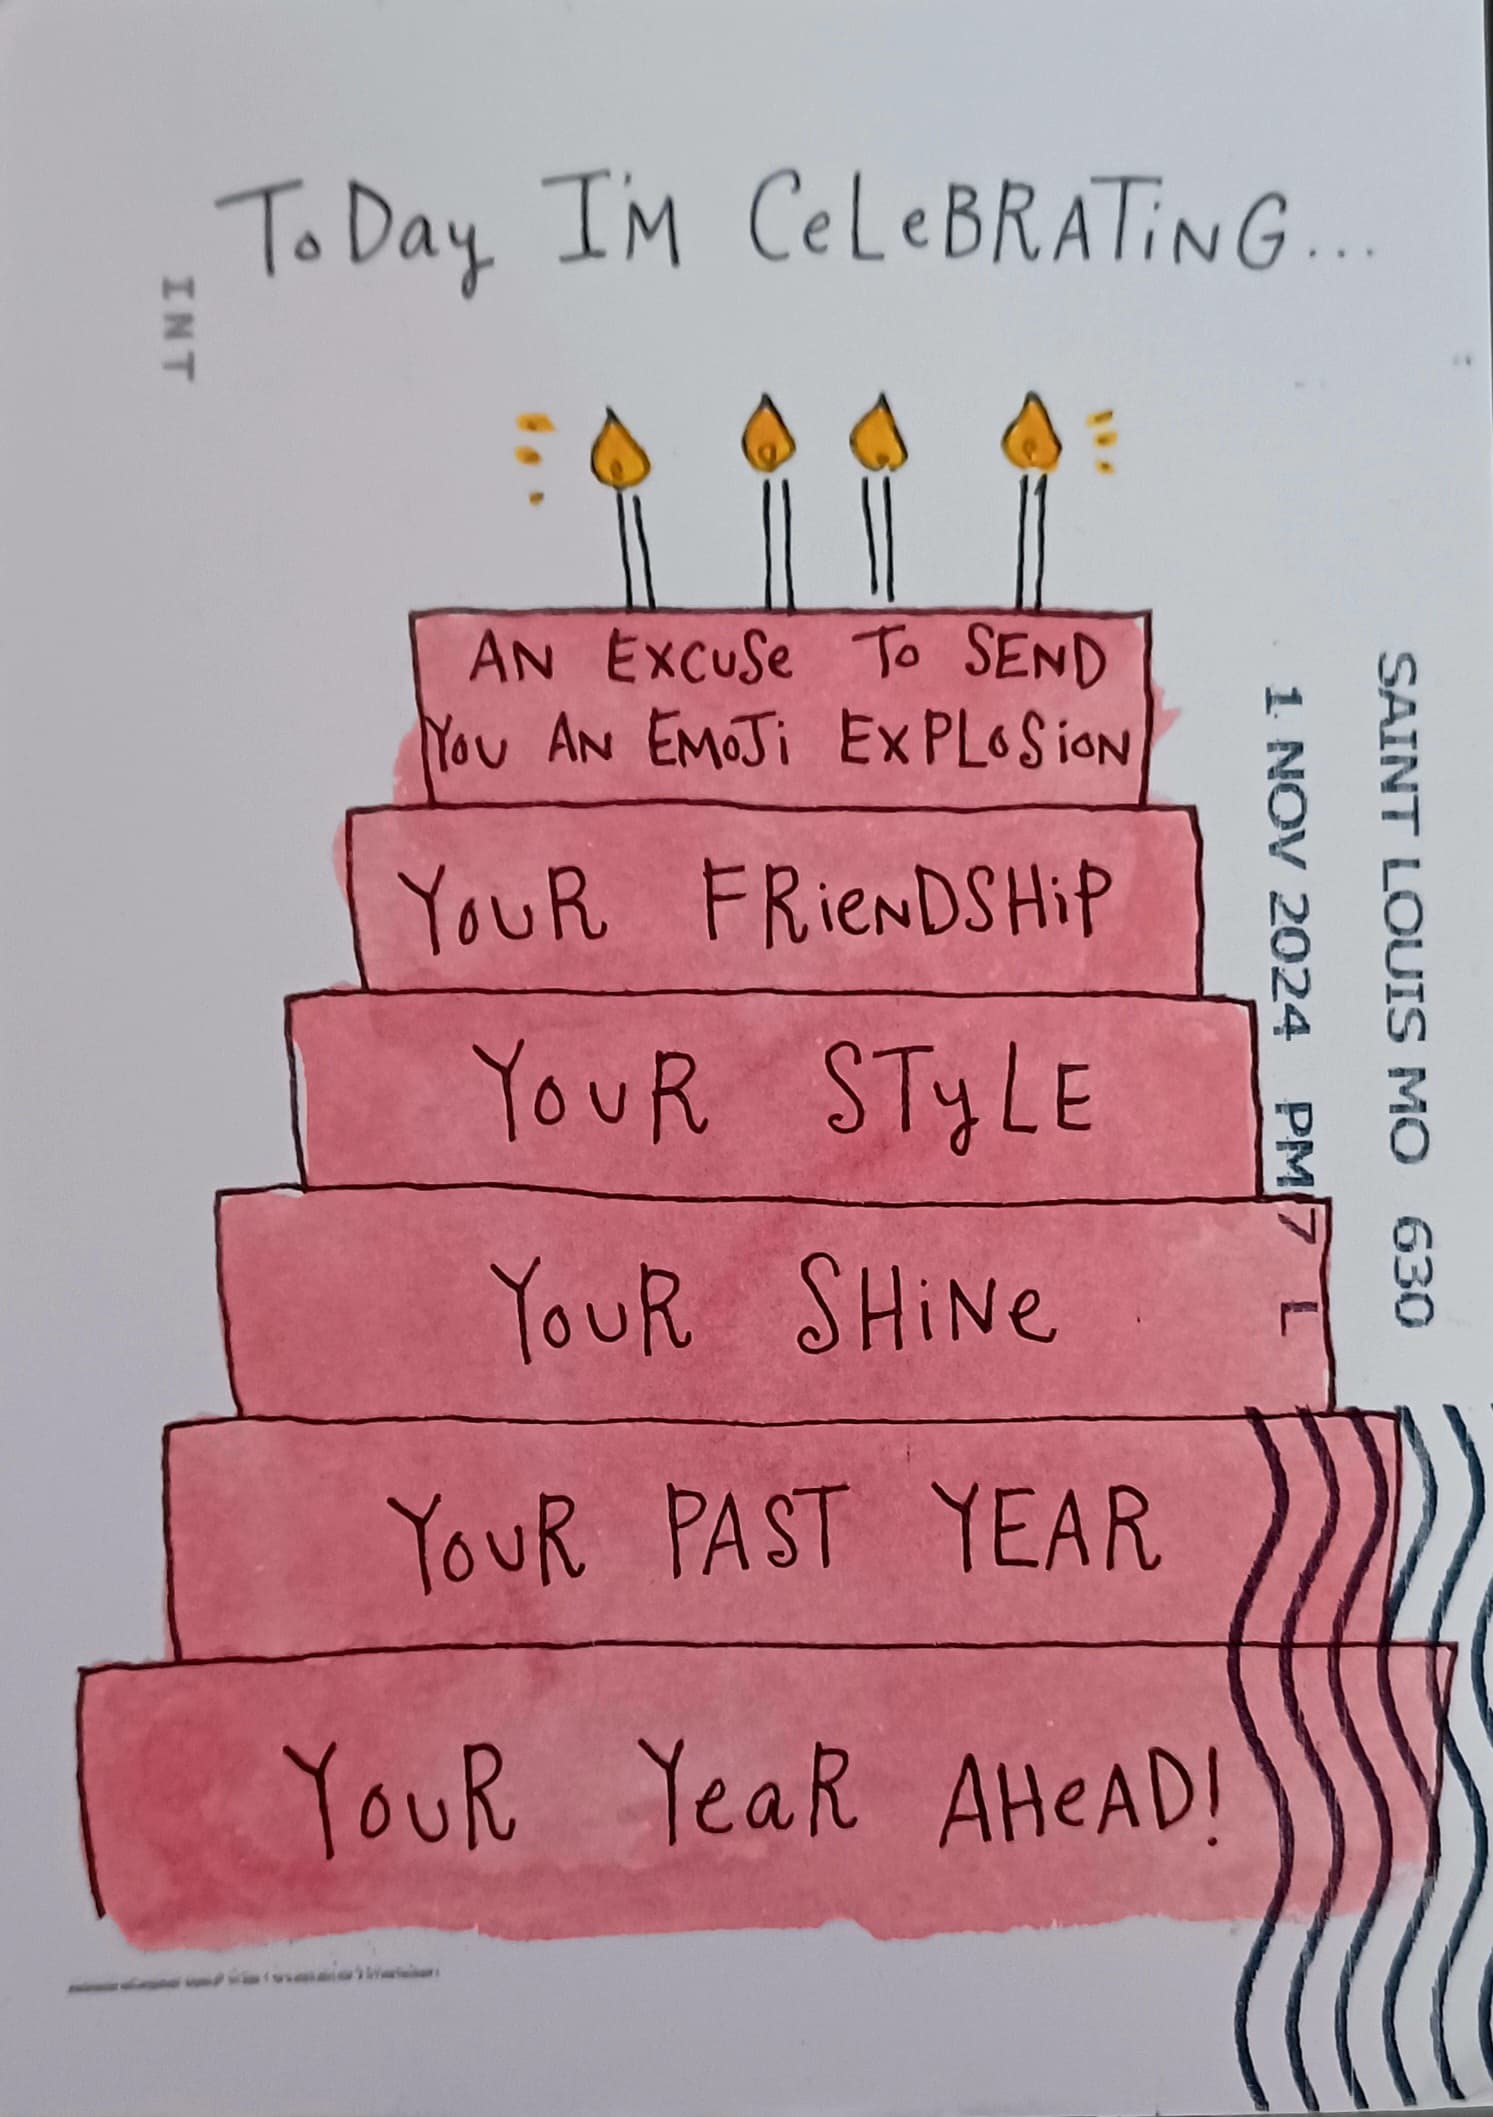 ToDay I'M CeLeBRATiNG...
INT
AN EXCUSe To SEND
You AN EMoJi EXPLoSioN
YouR FRieNDSHiP
YouR STyLE
YouR SHiNe
YouR PAST YEAR
YouR YeaR AHeAD!
SAINT LOUIS MO 630
1 NOV 2024 PM 7 L